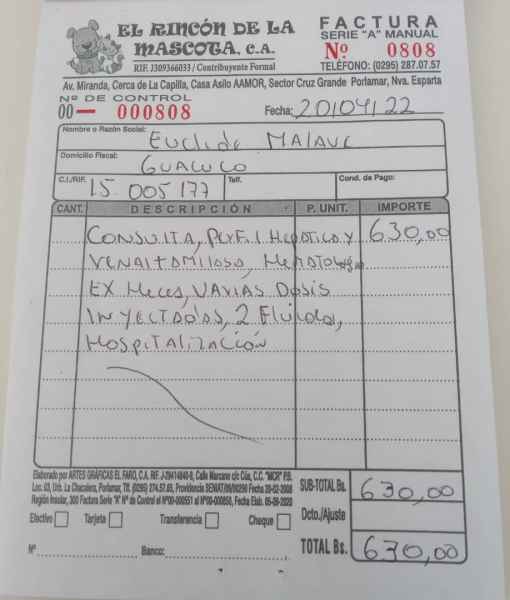 EL RINCÓN DE LA
MASCOTA, C.A.
RIF. J309366033 / Contribuyente Formal
FACTURA
SERIE "A" MANUAL
Nº 0808
TELÉFONO: (0295) 287.07.57
Av. Miranda, Cerca de La Capilla, Casa Asilo AAMOR, Sector Cruz Grande Porlamar, Nva. Esparta
Nº DE CONTROL
00— 000808
Fecha: 20/04/22
Nombre o Razón Social:
Euclide MALAVE
Domicilio Fiscal:
GUACUCO
C.I./RIF.
15.005177
Telf.
Cond. de Pago:
CANT. DESCRIPCIÓN P. UNIT. IMPORTE
CONSULTA, PERFIL HEPATICO Y 630,00
HEMATOLOGIA
EX Heces, VARIAS DOSIS
INYECTADAS, 2 Fluidos,
HOSPITALIZACIÓN
Elaborado por ARTES GRÁFICAS EL FARO, C.A. RIF. J-29414840-8, Calle Marcano c/c Cúa, C.C. "MCR" P.B.
Loc. 03, Urb. La Chacalera, Porlamar, Tlf. (0295) 274.57.65, Providencia SENIAT/06/00290 Fecha 20-02-2008
Región Insular, 300 Factura Serie "A" Nº de Control el Nº00-000551 al Nº00-000850, Fecha Elab. 05-08-2020
Efectivo Tarjeta Transferencia Cheque
Nº Banco:
SUB-TOTAL Bs. 630,00
Dcto./Ajuste
TOTAL Bs. 630,00